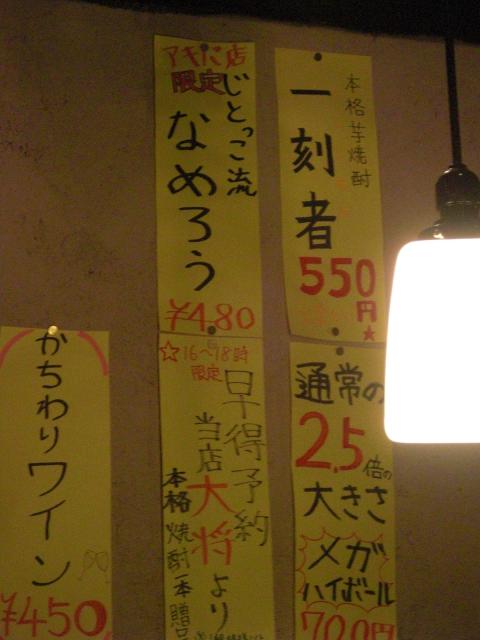 本格芋焼酎
一刻者
550円★
アキバ店
限定
じとっこ流
なめろう
¥480
かちわりワイン
¥450
☆16〜18時
限定
早得予約
当店大将より
本格焼酎一本贈呈
通常の
2.5倍の
大きさ
メガ
ハイボール
700円